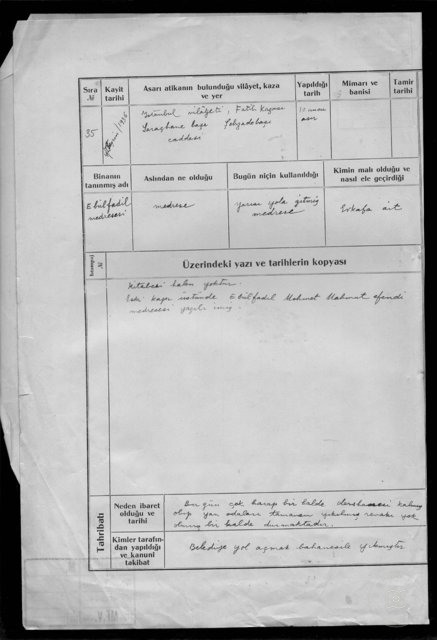 Sıra № Kayit tarihi Asarı atikanın bulunduğu vilâyet, kaza ve yer Yapıldığı tarih Mimarı ve banisi Tamir tarihi
35 /1936 İstanbul vilâyeti, Fatih Kazası
Saraçhane başı Şehzadebaşı
caddesi
10 uncu
asır
Binanın tanınmış adı Aslından ne olduğu Bugün niçin kullanıldığı Kimin malı olduğu ve nasıl ele geçirdiği
Ebülfadil
medresesi
medrese
yarısı yola gitmiş
medrese
Evkafa ait
İstampaj № Üzerindeki yazı ve tarihlerin kopyası
Kitabesi halen yoktur.
Eski kapı üstünde Ebülfadil Mehmet Mahmut efendi
medresesi yazılı imiş.
Tahribatı
Neden ibaret
olduğu ve
tarihi
Bu gün çok harap bir halde dershanesi kalmış
olup yan odaları tamamen yıkılmış revakı yok
olmuş bir halde durmaktadır.
Kimler tarafın-
dan yapıldığı
ve kanunî
takibat
Belediye yol açmak bahanesile yıkmıştır